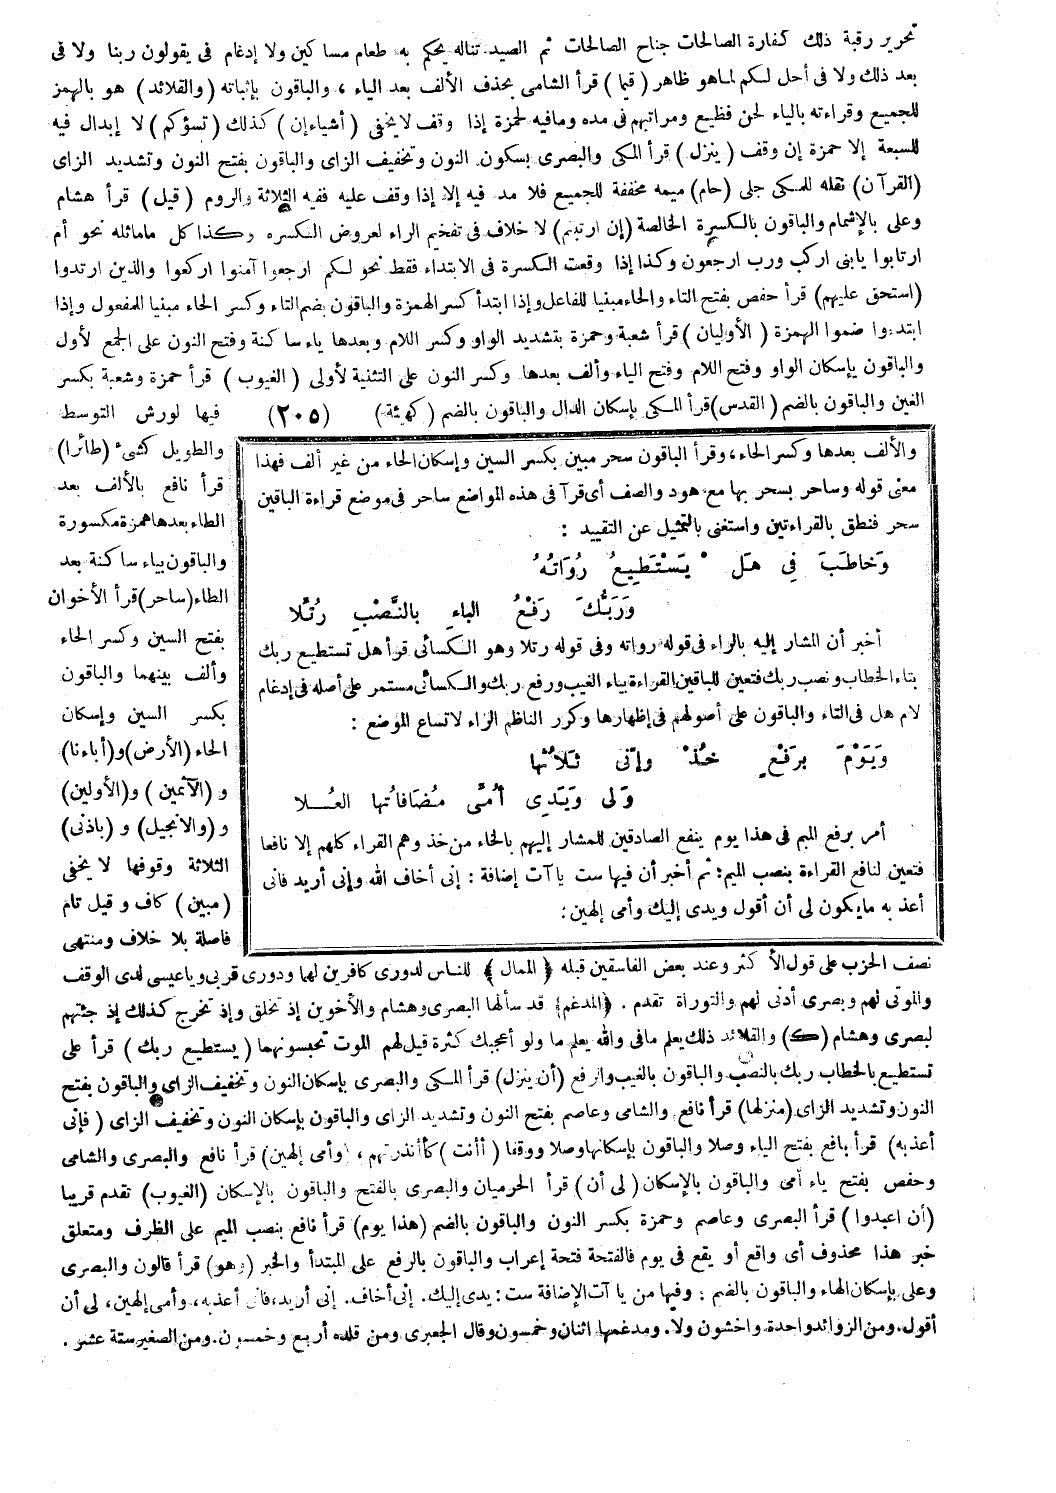 تحرير رقبة ذلك كفارة الصالحات جناح الصالحات ثم الصيد تناله يحكم به طعام مساكين ولا إدغام فى يقولون ربنا ولا فى
بعد ذلك ولا فى أحل لكم لما هو ظاهر (قيما) قرأ الشامى بحذف الألف بعد الياء، والباقون بإثباته (والقلائد) هو بالهمز
للجميع وقراءته بالياء لحن فظيع ومراتبهم فى مده ومافيه لحمزة إذا وقف لا يخفى (أشياء إن) كذلك (تسؤكم) لا إبدال فيه
للسبعة إلا حمزة إن وقف (ينزل) قرأ المكى والبصرى بسكون النون وتخفيف الزاى والباقون بفتح النون وتشديد الزاى
(القرآن) نقله للمكى جلى (حام) ميمه مخففة للجميع فلا مد فيه إلا إذا وقف عليه ففيه الثلاثة والروم (قيل) قرأ هشام
وعلى بالإشمام والباقون بالكسرة الخالصة (إن ارتبتم) لا خلاف فى تفخيم الراء لعروض الكسره وكذا كل ماماثله نحو أم
ارتابوا يابنى اركب ورب ارجعون وكذا إذا وقعت الكسرة فى الابتداء فقط نحو لكم ارجعوا آمنوا اركعوا والذين ارتدوا
(استحق عليهم) قرأ حفص بفتح التاء والحاء مبنيا للفاعل وإذا ابتدأ كسر الهمزة والباقون بضم التاء وكسر الحاء مبنيا للمفعول وإذا
ابتدءوا ضموا الهمزة (الأوليان) قرأ شعبة وحمزة بتشديد الواو وكسر اللام وبعدها ياء ساكنة وفتح النون على الجمع لأول
والباقون بإسكان الواو وفتح اللام وفتح الياء وألف بعدها وكسر النون على التثنية لأولى (الغيوب) قرأ حمزة وشعبة بكسر
الغين والباقون بالضم (القدس) قرأ المكى بإسكان الدال والباقون بالضم (كهيئة) (٢٠٥) فيها لورش التوسط
والطويل كشىء (طائرا)
قرأ نافع بالألف بعد
الطاء بعدها همزة مكسورة
والباقون بياء ساكنة بعد
الطاء (ساحر) قرأ الأخوان
بفتح السين وكسر الحاء
وألف بينهما والباقون
بكسر السين وإسكان
الحاء (الأرض) و(أباءنا)
و (الآثمين) و(الأولين)
و (والانجيل) و (باذنى)
الثلاثة وقوفها لا يخفى
(مبين) كاف وقيل تام
فاصلة بلا خلاف ومنتهى
والألف بعدها وكسر الحاء، وقرأ الباقون سحر مبين بكسر السين وإسكان الحاء من غير ألف فهذا
معنى قوله وساحر بسحر بها مع هود والصف أى قرآ فى هذه المواضع ساحر فى موضع قراءة الباقين
سحر فنطق بالقراءتين واستغنى بالتمثيل عن التقييد :
وَخاطَبَ فِى هَلْ يَسْتَطِيعُ رُوَاتُهُ
وَرَبُّكَ رَفْعُ الباءِ بالنَّصْبِ رُتِّلا
أخبر أن المشار إليه بالراء فى قوله رواته وفى قوله رتلا وهو الكسائى قرأ هل تستطيع ربك
بتاء الخطاب ونصب ربك فتعين للباقين القراءة بياء الغيب ورفع ربك والكسائى مستمر على أصله فى إدغام
لام هل فى التاء والباقون على أصولهم فى إظهارها وكرر الناظم الراء لاتساع الموضع :
وَيَوْمَ بِرَفْعٍ خُذْ وإنّى ثَلاثُها
وَلِى وَيَدِى أُمِّى مُضَافاتُها العُلا
أمر برفع الميم فى هذا يوم ينفع الصادقين للمشار إليهم بالخاء من خذ وهم القراء كلهم إلا نافعا
فتعين لنافع القراءة بنصب الميم: ثم أخبر أن فيها ست ياآت إضافة : إنى أخاف الله وإنى أريد فانى
أعذبه مايكون لى أن أقول ويدى إليك وأمى إلهين:
نصف الحزب على قول الأكثر وعند بعض الفاسقين قبله ﴿الممال﴾ للناس لدورى كافرين لهما ودورى قربى وياعيسى لدى الوقف
والموتى لهم وبصرى أدنى لهم والتوراة تقدم . ﴿المدغم﴾ قد سألها البصرى وهشام والأخوين إذ تخلق وإذ تخرج كذلك إذ جئتهم
لبصرى وهشام (ك) والقلائد ذلك يعلم مافى والله يعلم ما ولو أعجبك كثرة قيل لهم الموت تحبسونهما (يستطيع ربك) قرأ على
تستطيع بالخطاب ربك بالنصب والباقون بالغيب والرفع (أن ينزل) قرأ المكى والبصرى بإسكان النون وتخفيف الزاى والباقون بفتح
النون وتشديد الزاى (منزلها) قرأ نافع والشامى وعاصم بفتح النون وتشديد الزاى والباقون بإسكان النون وتخفيف الزاى (فإنى
أعذبه) قرأ نافع بفتح الياء وصلا والباقون بإسكانها وصلا ووقفا (أأنت) كأأنذرتهم، (وأمى إلهين) قرأ نافع والبصرى والشامى
وحفص بفتح ياء أمى والباقون بالإسكان (لى أن) قرأ الحرميان والبصرى بالفتح والباقون بالإسكان (الغيوب) تقدم قريبا
(أن اعبدوا) قرأ البصرى وعاصم وحمزة بكسر النون والباقون بالضم (هذا يوم) قرأ نافع بنصب الميم على الظرف ومتعلق
خبر هذا محذوف أى واقع أو يقع فى يوم فالفتحة فتحة إعراب والباقون بالرفع على المبتدأ والخبر (وهو) قرأ قالون والبصرى
وعلى بإسكان الهاء والباقون بالضم : وفيها من ياآت الإضافة ست : يدى إليك. إنى أخاف. إنى أريد، فانى أعذبه، وأمى إلهين، لى أن
أقول. ومن الزوائد واحدة واخشون ولا. ومدغمها اثنان وخمسون وقال الجعبرى ومن قلده أربع وخمسون. ومن الصغير ستة عشر .